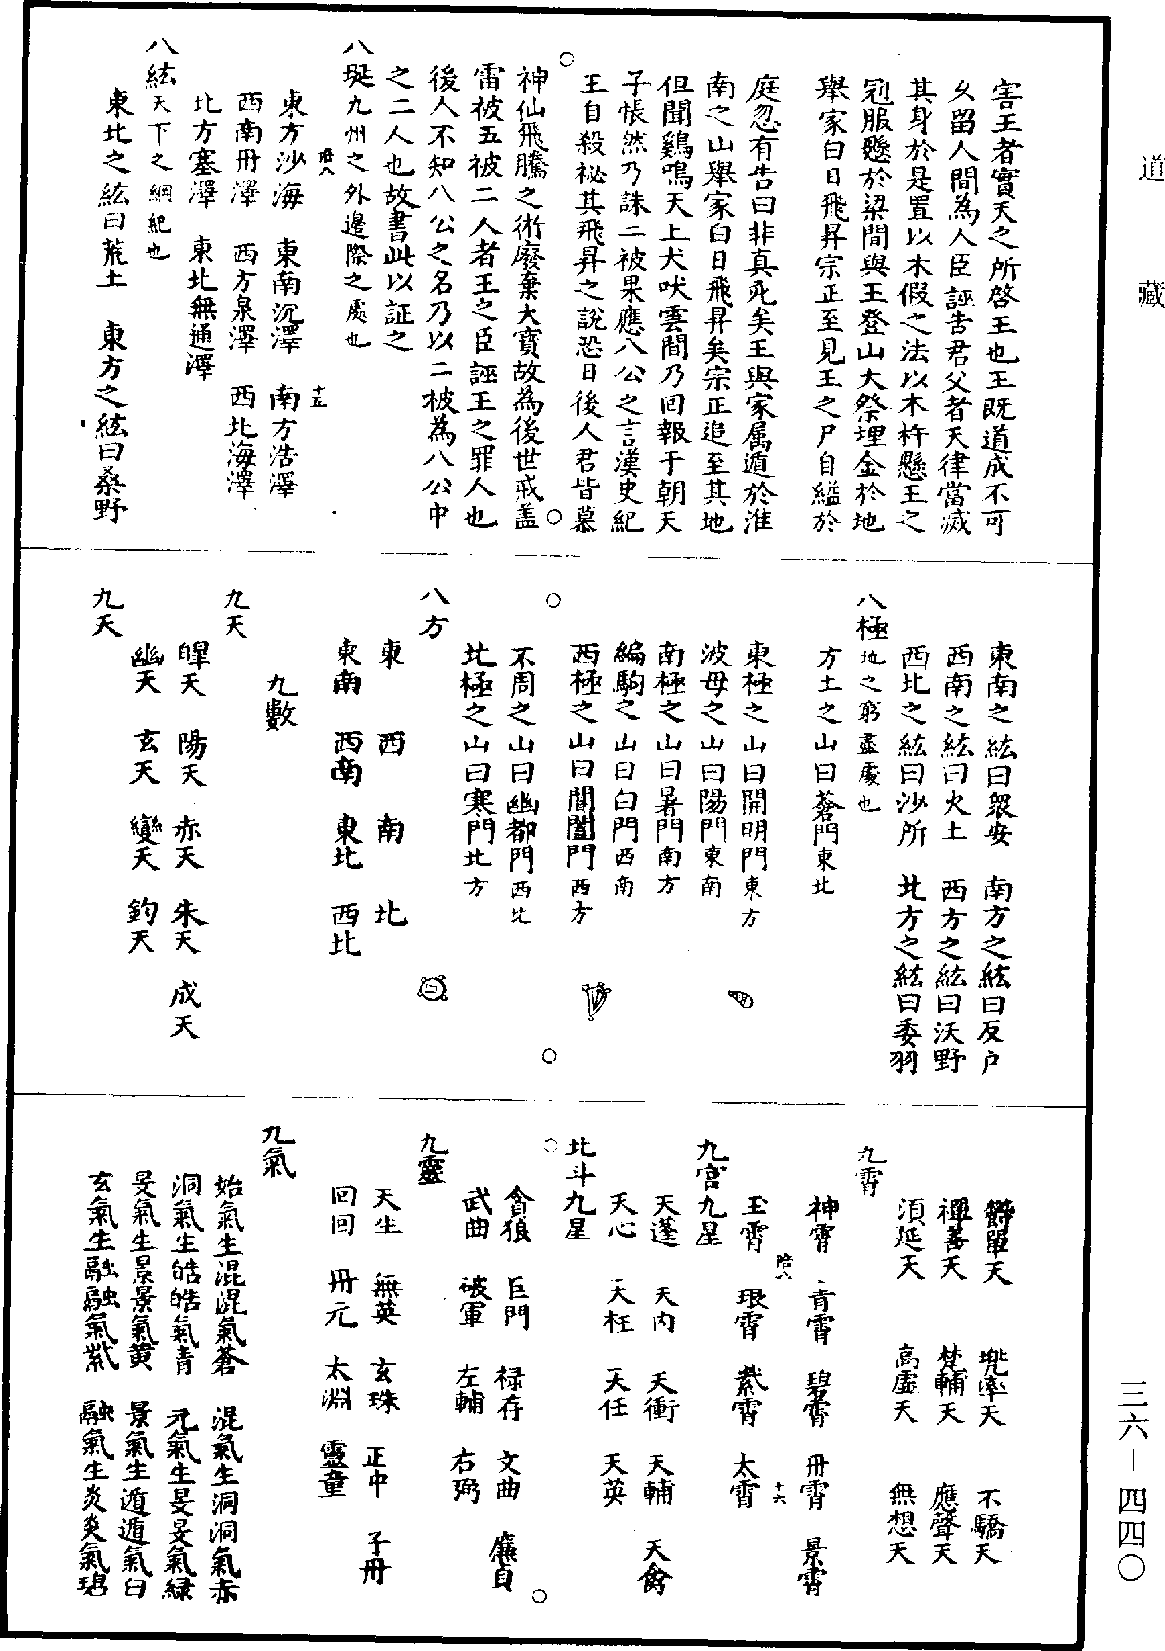 道藏
害王者實天之所啓王也王既道成不可
久留人間為人臣誣告君父者天律當滅
其身於是置以木假之法以木杵懸王之
冠服懸於梁間與王登山大祭埋金於地
舉家白日飛昇宗正至見王之尸自縊於
庭忽有告曰非真死矣王與家属遁於淮
南之山舉家白日飛昇矣宗正追至其地
但聞鷄鳴天上犬吠雲間乃回報于朝天
子悵然乃誅二被果應八公之言漢史紀
王自殺祕其飛昇之說恐日後人君皆慕
神仙飛騰之術廢棄大寶故為後世戒盖
雷被五被二人者王之臣誣王之罪人也
後人不知八公之名乃以二被為八公中
之二人也故書此以証之
八埏九州之外邊際之處也
東方沙海 東南沉澤 南方浩澤
西南丹澤 西方泉澤 西北海澤
北方塞澤 東北無通澤
八紘天下之綱紀也
東北之紘曰荒土 東方之紘曰桑野
東南之紘曰衆安 南方之紘曰反户
西南之紘曰火土 西方之紘曰沃野
西北之紘曰沙所 北方之紘曰委羽
八極地之窮盡處也
方土之山曰蒼門東北
東極之山曰開明門東方
波母之山曰陽門東南
南極之山曰暑門南方
編駒之山曰白門西南
西極之山曰閶闔門西方
不周之山曰幽都門西北
北極之山曰寒門北方
八方
東 西 南 北
東南 西南 東北 西北
九數
九天
皡天 陽天 赤天 朱天 成天
幽天 玄天 變天 鈞天
九天
鬱單天 兜率天 不驕天
禪善天 梵輔天 應聲天
須延天 高虛天 無想天
九霄
神霄 青霄 碧霄 丹霄 景霄
玉霄 琅霄 紫霄 太霄
九宮九星
天蓬 天内 天衝 天輔 天禽
天心 天柱 天任 天英
北斗九星
貪狼 巨門 禄存 文曲 廉貞
武曲 破軍 左輔 右弼
九靈
天生 無英 玄珠 正中 子丹
回回 丹元 太淵 靈童
九氣
始氣生混混氣蒼 混氣生洞洞氣赤
洞氣生皓皓氣青 元氣生旻旻氣緑
旻氣生景景氣黄 景氣生遁遁氣白
玄氣生融融氣紫 融氣生炎炎氣碧
三六－四四〇